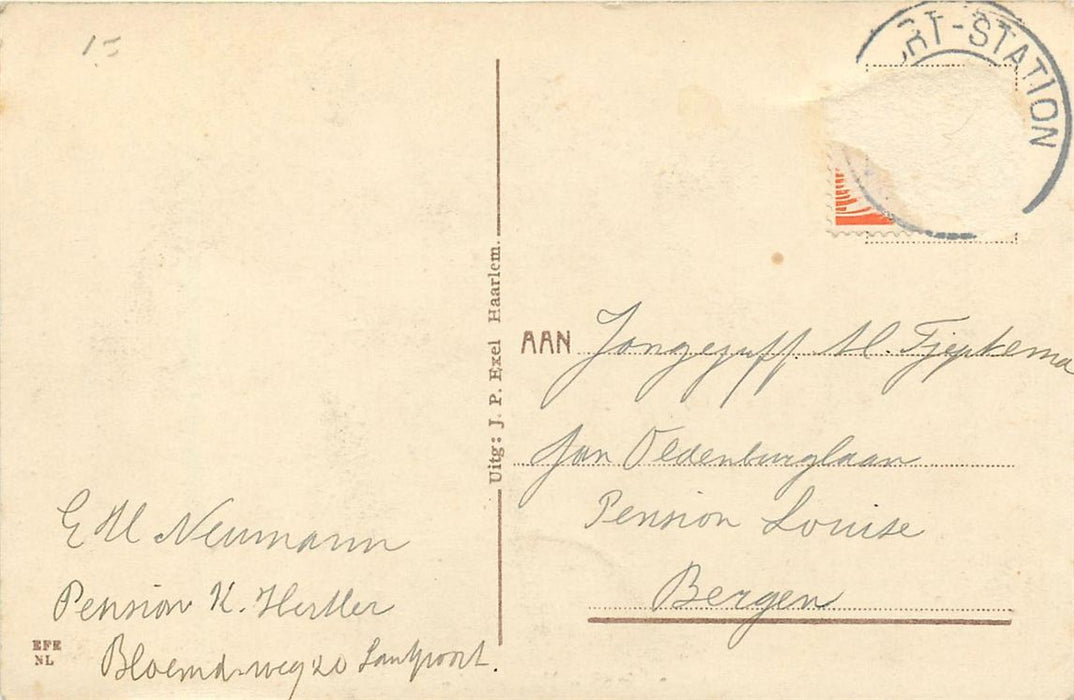 1=
RT-STATION
Uitg: J. P. Exel Haarlem.
AAN Jongejuff. M. Tjeptema
Jan Oldenburglaan
Pension Louise
Bergen
E M Neumann
Pension K. Hertler
Bloemd.weg 20 Santpoort.
EFE
NL